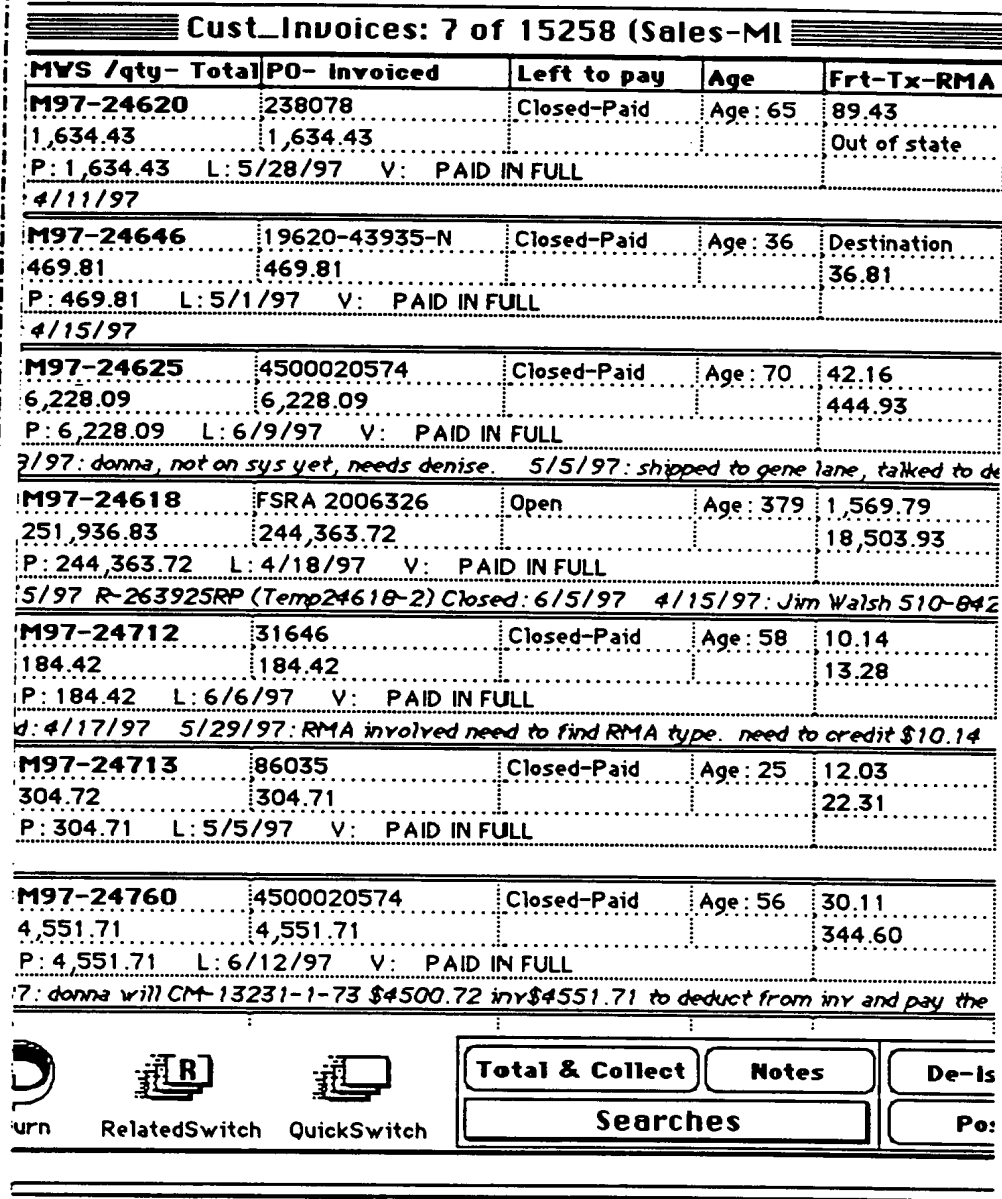 Cust_Invoices: 7 of 15258 (Sales-
MWS /qty- Total PO- Invoiced Left to pay Age Frt-Tx-RMA
M97-24620 238078 Closed-Paid Age: 65 89.43
1,634.43 1,634.43 Out of state
P: 1,634.43 L: 5/28/97 V: PAID IN FULL
4/11/97
M97-24646 19620-43935-N Closed-Paid Age: 36 Destination
469.81 469.81 36.81
P: 469.81 L: 5/1/97 V: PAID IN FULL
4/15/97
M97-24625 4500020574 Closed-Paid Age: 70 42.16
6,228.09 6,228.09 444.93
P: 6,228.09 L: 6/9/97 V: PAID IN FULL
9/97: donna, not on sys yet, needs denise. 5/5/97: shipped to gene lane, talked to de
M97-24618 FSRA 2006326 Open Age: 379 1,569.79
251,936.83 244,363.72 18,503.93
P: 244,363.72 L: 4/18/97 V: PAID IN FULL
5/97 R-263925RP (Temp24618-2) Closed: 6/5/97 4/15/97: Jim Walsh 510-842
M97-24712 31646 Closed-Paid Age: 58 10.14
184.42 184.42 13.28
P: 184.42 L: 6/6/97 V: PAID IN FULL
d: 4/17/97 5/29/97: RMA involved need to find RMA type. need to credit $10.14
M97-24713 86035 Closed-Paid Age: 25 12.03
304.72 304.71 22.31
P: 304.71 L: 5/5/97 V: PAID IN FULL
M97-24760 4500020574 Closed-Paid Age: 56 30.11
4,551.71 4,551.71 344.60
P: 4,551.71 L: 6/12/97 V: PAID IN FULL
7: donna will CM-13231-1-73 $4500.72 inv$4551.71 to deduct from inv and pay the
R
Total & Collect Notes De-is
urn RelatedSwitch QuickSwitch Searches Pos